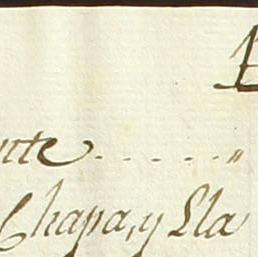 E
nte ...... "
Chapa, y Lla